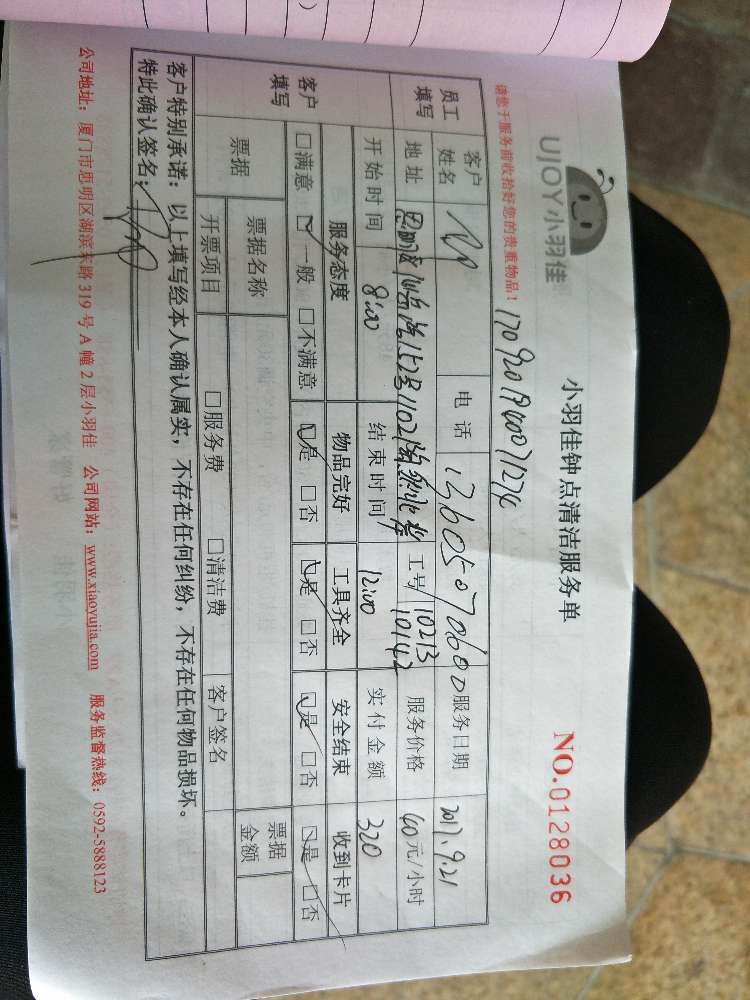 UJOY小羽佳
小羽佳钟点清洁服务单
NO.0128036
请您于服务前收拾好您的贵重物品！
员工填写
客户姓名 电话 13605070600 服务日期 2017.9.21
地址 工号 10213 10142 服务价格 40元/小时
开始时间 8:00 结束时间 12:00 实付金额 320
客户填写
服务态度 物品完好 工具齐全 安全结束 收到卡片
□满意 □一般 □不满意 □是 □否 □是 □否 □是 □否 □是 □否
票据 票据名称 票据金额
开票项目 □服务费 □清洁费 客户签名
客户特别承诺：以上填写经本人确认属实，不存在任何纠纷，不存在任何物品损坏。
特此确认签名：
公司地址：厦门市思明区湖滨东路319号A幢2层小羽佳 公司网站：www.xiaoyujia.com 服务监督热线：0592-5888123